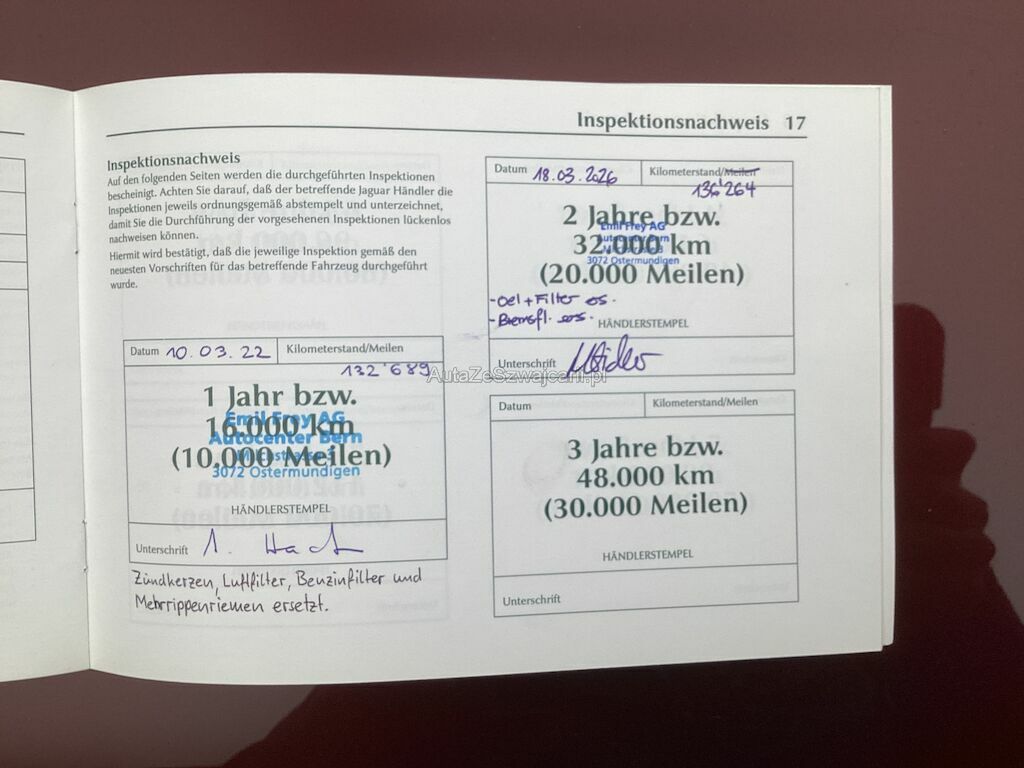 Inspektionsnachweis 17
Inspektionsnachweis
Auf den folgenden Seiten werden die durchgeführten Inspektionen
bescheinigt. Achten Sie darauf, daß der betreffende Jaguar Händler die
Inspektionen jeweils ordnungsgemäß abstempelt und unterzeichnet,
damit Sie die Durchführung der vorgesehenen Inspektionen lückenlos
nachweisen können.
Hiermit wird bestätigt, daß die jeweilige Inspektion gemäß den
neuesten Vorschriften für das betreffende Fahrzeug durchgeführt
wurde.
Datum 10.03.22 Kilometerstand/Meilen
132'689
1 Jahr bzw.
16.000 km
(10,000 Meilen)
Emil Frey AG
Autocenter Bern
3072 Ostermundigen
HÄNDLERSTEMPEL
Unterschrift
Zündkerzen, Luftfilter, Benzinfilter und
Mehrrippenriemen ersetzt.
Datum 18.03.2026 Kilometerstand/Meilen
136'264
2 Jahre bzw.
32.000 km
(20.000 Meilen)
Emil Frey AG
Autocenter Bern
3072 Ostermundigen
-Oel+Filter es.
-Bremsfl. ers.
HÄNDLERSTEMPEL
Unterschrift
AutaZeSzwajcarii.pl
Datum Kilometerstand/Meilen
3 Jahre bzw.
48.000 km
(30.000 Meilen)
HÄNDLERSTEMPEL
Unterschrift